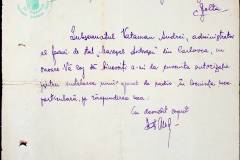 Golta
Subsemnatul Vataman Andrei, administrator
al fermei de Stat "Mareșal Antonescu" din Carlovca, cu
onoare Vă rog să binevoiți a-mi da cuvenita autorizație
pentru instalarea unui aparat de radio în locuința mea
particulară, pe răspunderea mea.
Cu deosebit respect